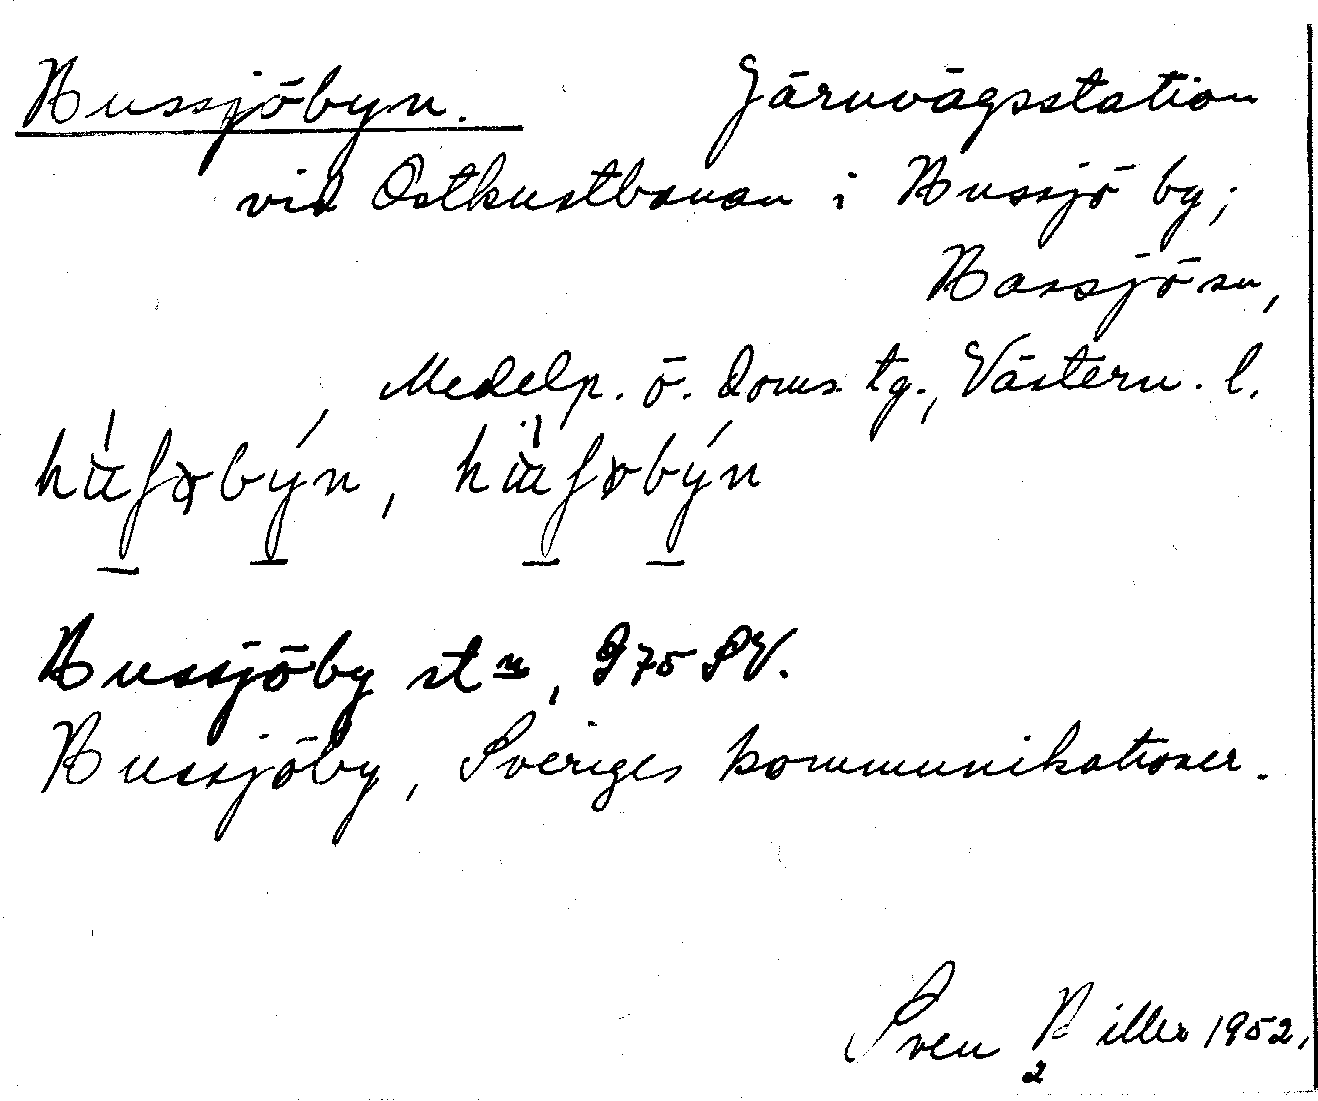 Hussjöbyn. Järnvägsstation
vid Ostkustbanan i Hussjö by;
Hässjö sn,
Medelp. ö. doms. tg., Västern. l.
Hussjöby stn, 975 SV.
Hussjöby, Sveriges kommunikationer.
Sven Hiller 1952.
2